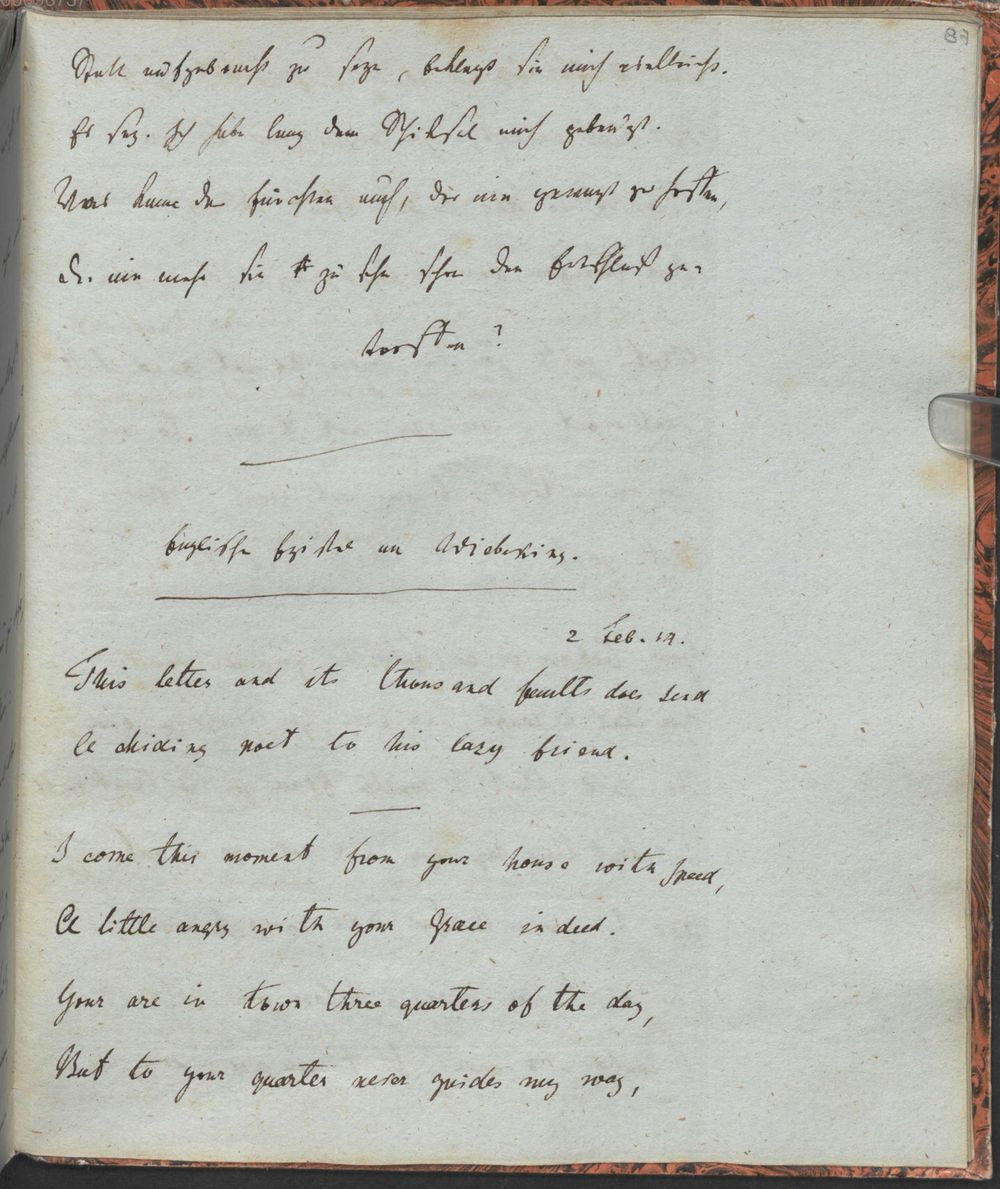 87
Statt aufgebracht zu seyn, beklagst sie mich vielleicht.
Es sey. Ich habe lang dem Schiksal mich gebeugt.
Was kann da fürchten auch, der nie gewagt zu hoffen,
der nie mehr sie zu sehn schon den Entschluß ge-
troffen?
Englische Epistel an Wiebeking.
2 Feb. 14.
This letter and its thousand faults does send
A chiding poet to his lazy friend.
I come this moment from your house with speed,
A little angry with your Grace indeed.
Your are in town three quarters of the day,
But to your quarter never guides my way,